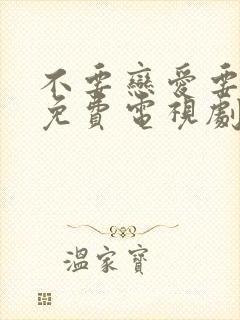 不要戀愛要
免費電視劇
溫家寶